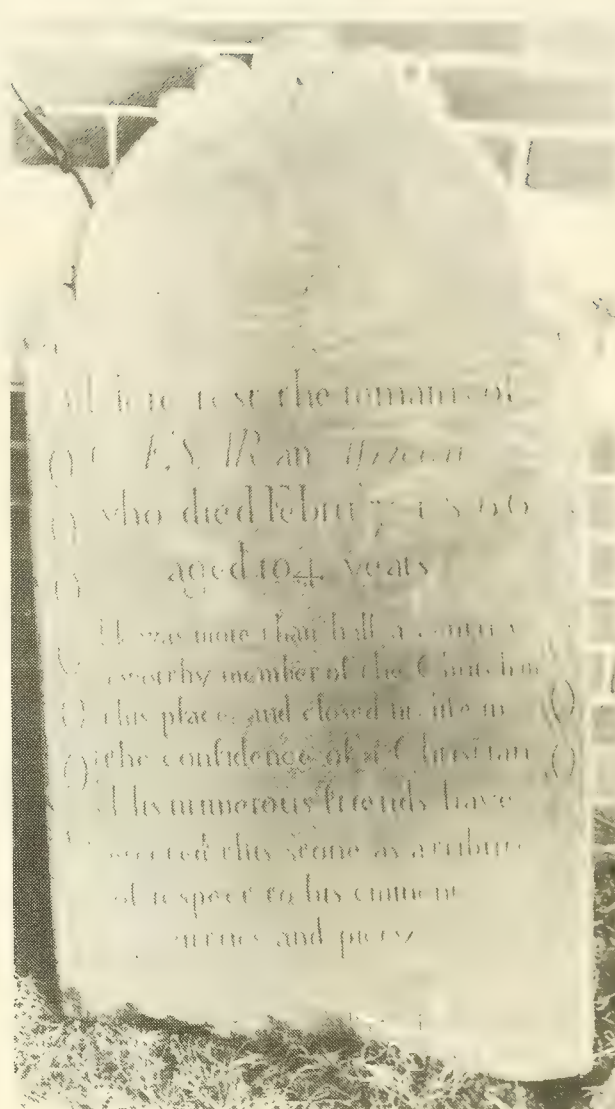 rest the remains of
an
who died
aged 104 years
was more than half a century
worthy member of the Church in
this place, and closed his life in
the confidence of a Christian
His numerous friends have
erected this stone as a tribute
of respect to his eminent
virtues and piety